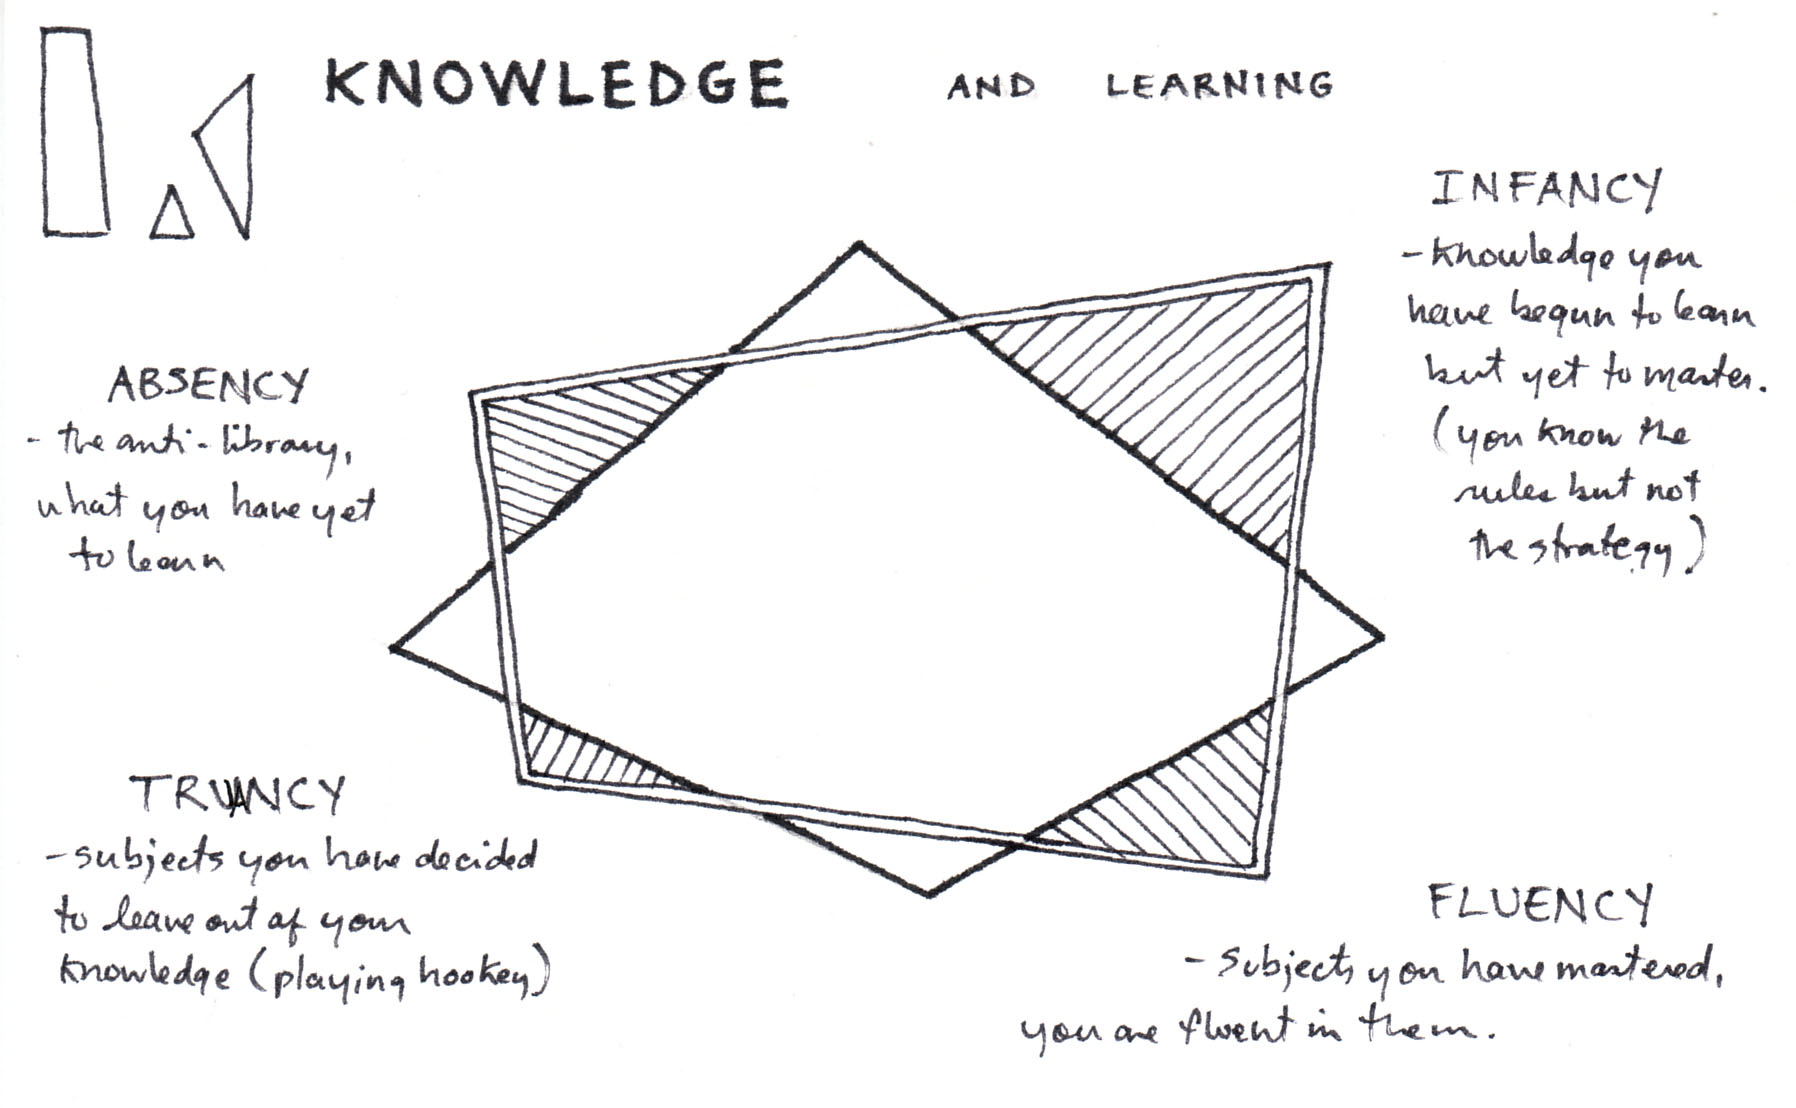 KNOWLEDGE AND LEARNING
INFANCY
- knowledge you
have begun to learn
but yet to master.
(you know the
rules but not
the strategy)
ABSENCY
- the anti-library,
what you have yet
to learn
TRUANCY
- subjects you have decided
to leave out of your
knowledge (playing hookey)
FLUENCY
- subjects you have mastered,
you are fluent in them.